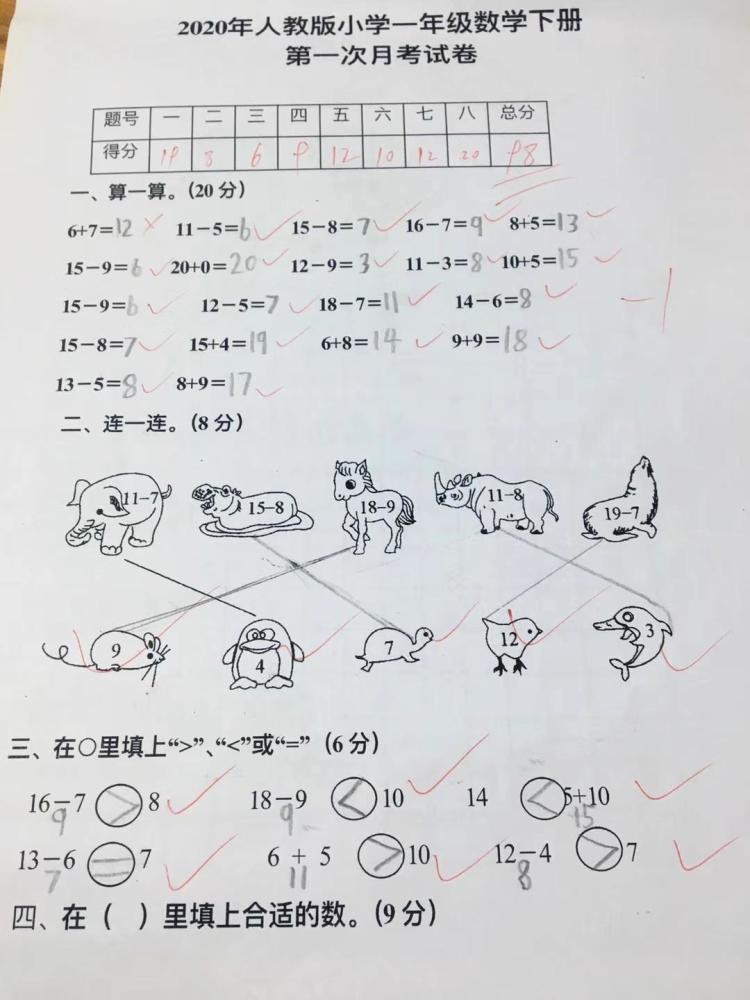 2020年人教版小学一年级数学下册
第一次月考试卷
题号 一 二 三 四 五 六 七 八 总分
得分 19 8 6 9 12 10 12 20 98
一、算一算。(20 分)
6+7=12 11-5=6 15-8=7 16-7=9 8+5=13
15-9=6 20+0=20 12-9=3 11-3=8 10+5=15
15-9=6 12-5=7 18-7=11 14-6=8
-1
15-8=7 15+4=19 6+8=14 9+9=18
13-5=8 8+9=17
二、连一连。(8 分)
11-7 15-8 18-9 11-8 19-7
9 4 7 12 3
三、在○里填上“>”、“<”或“=”(6 分)
16-7 > 8 18-9 < 10 14 < 5+10
9 9 15
13-6 = 7 6 + 5 > 10 12-4 > 7
7 11 8
四、在（ ）里填上合适的数。(9 分)